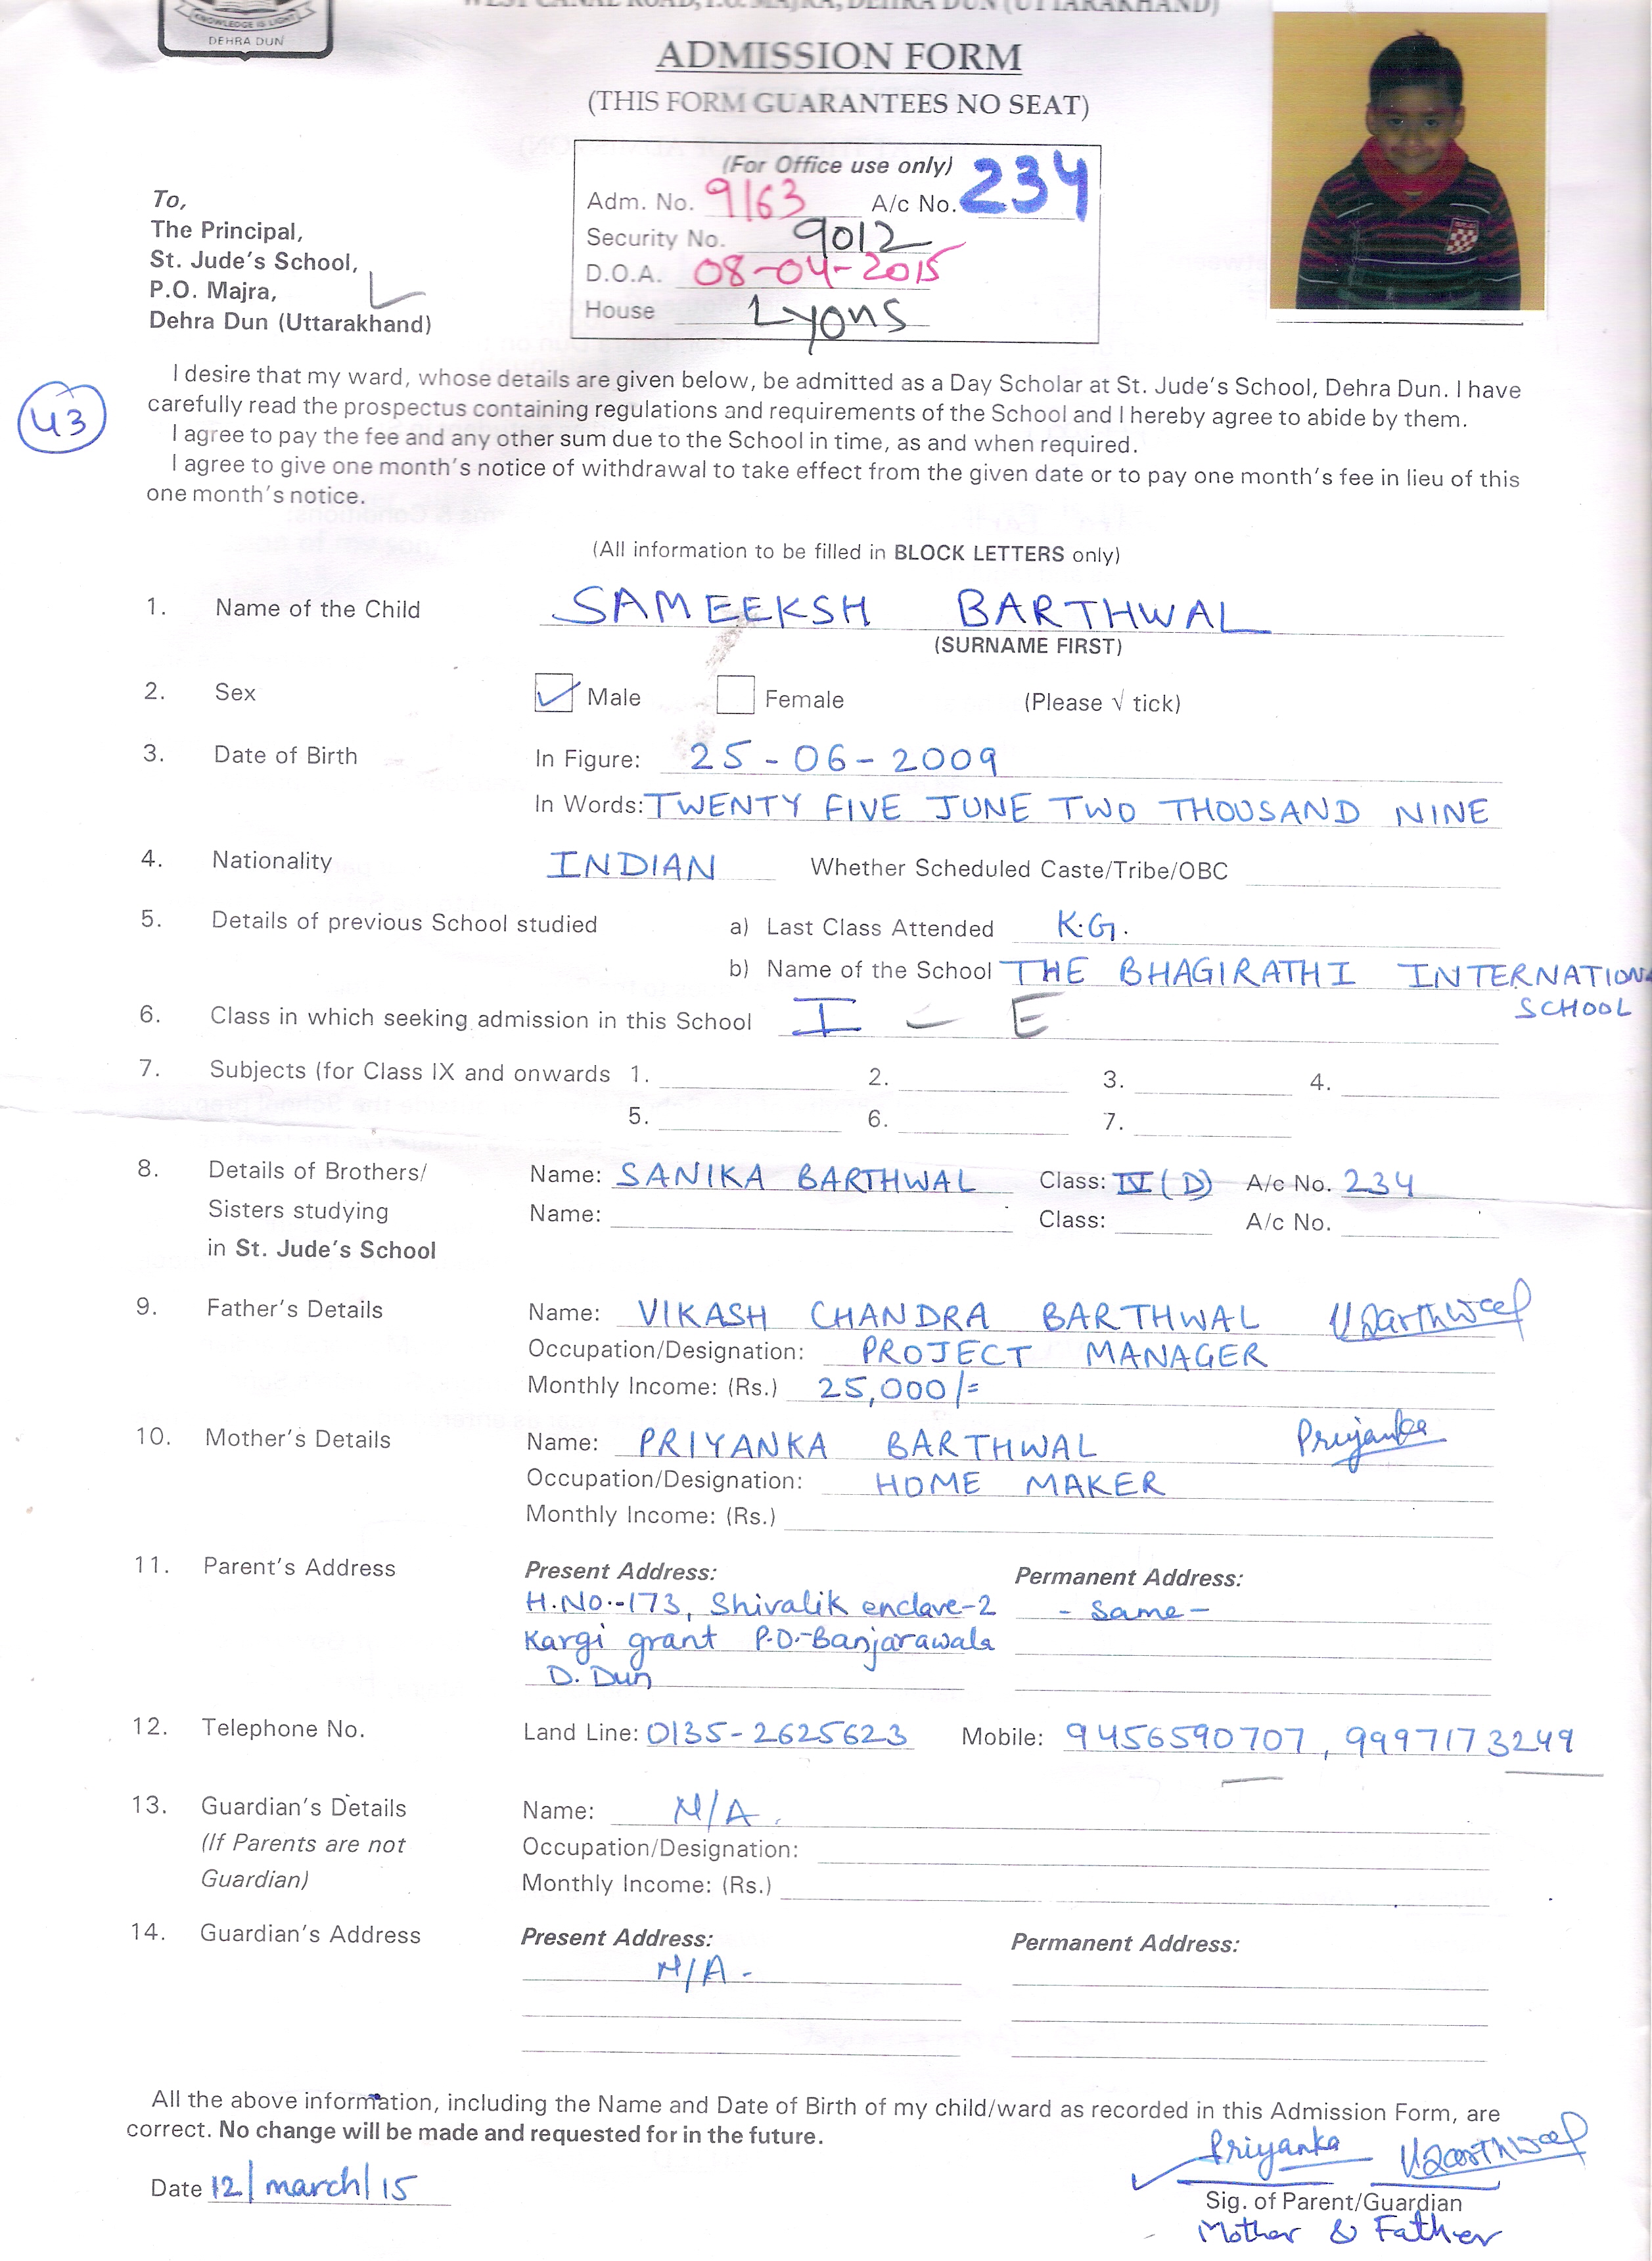 KNOWLEDGE IS LIGHT
DEHRA DUN
WEST CANAL ROAD, P.O. MAJRA, DEHRA DUN (UTTARAKHAND)
ADMISSION FORM
(THIS FORM GUARANTEES NO SEAT)
(For Office use only)
Adm. No. 9163 A/c No. 234
Security No. 9012
D.O.A. 08-04-2015
House Lyons
To,
The Principal,
St. Jude's School,
P.O. Majra,
Dehra Dun (Uttarakhand)
43
I desire that my ward, whose details are given below, be admitted as a Day Scholar at St. Jude's School, Dehra Dun. I have
carefully read the prospectus containing regulations and requirements of the School and I hereby agree to abide by them.
I agree to pay the fee and any other sum due to the School in time, as and when required.
I agree to give one month's notice of withdrawal to take effect from the given date or to pay one month's fee in lieu of this
one month's notice.
(All information to be filled in BLOCK LETTERS only)
1. Name of the Child SAMEEKSH BARTHWAL
(SURNAME FIRST)
2. Sex ✓ Male Female (Please √ tick)
3. Date of Birth In Figure: 25-06-2009
In Words: TWENTY FIVE JUNE TWO THOUSAND NINE
4. Nationality INDIAN Whether Scheduled Caste/Tribe/OBC
5. Details of previous School studied a) Last Class Attended K.G.
b) Name of the School THE BHAGIRATHI INTERNATIONA
SCHOOL
6. Class in which seeking admission in this School I - E
7. Subjects (for Class IX and onwards 1. 2. 3. 4.
5. 6. 7.
8. Details of Brothers/ Name: SANIKA BARTHWAL Class: IV (D) A/c No. 234
Sisters studying Name: Class: A/c No.
in St. Jude's School
9. Father's Details Name: VIKASH CHANDRA BARTHWAL VBarthwal
Occupation/Designation: PROJECT MANAGER
Monthly Income: (Rs.) 25,000/=
10. Mother's Details Name: PRIYANKA BARTHWAL Priyanka
Occupation/Designation: HOME MAKER
Monthly Income: (Rs.)
11. Parent's Address Present Address: Permanent Address:
H.No.-173, Shivalik enclave-2 - Same -
Kargi grant P.O.-Banjarawala
D. Dun
12. Telephone No. Land Line: 0135-2625623 Mobile: 9456590707, 9997173249
13. Guardian's Details Name: N/A.
(If Parents are not Occupation/Designation:
Guardian) Monthly Income: (Rs.)
14. Guardian's Address Present Address: Permanent Address:
N/A -
All the above information, including the Name and Date of Birth of my child/ward as recorded in this Admission Form, are
correct. No change will be made and requested for in the future.
Priyanka VBarthwal
Date 12/march/15
Sig. of Parent/Guardian
Mother & Father